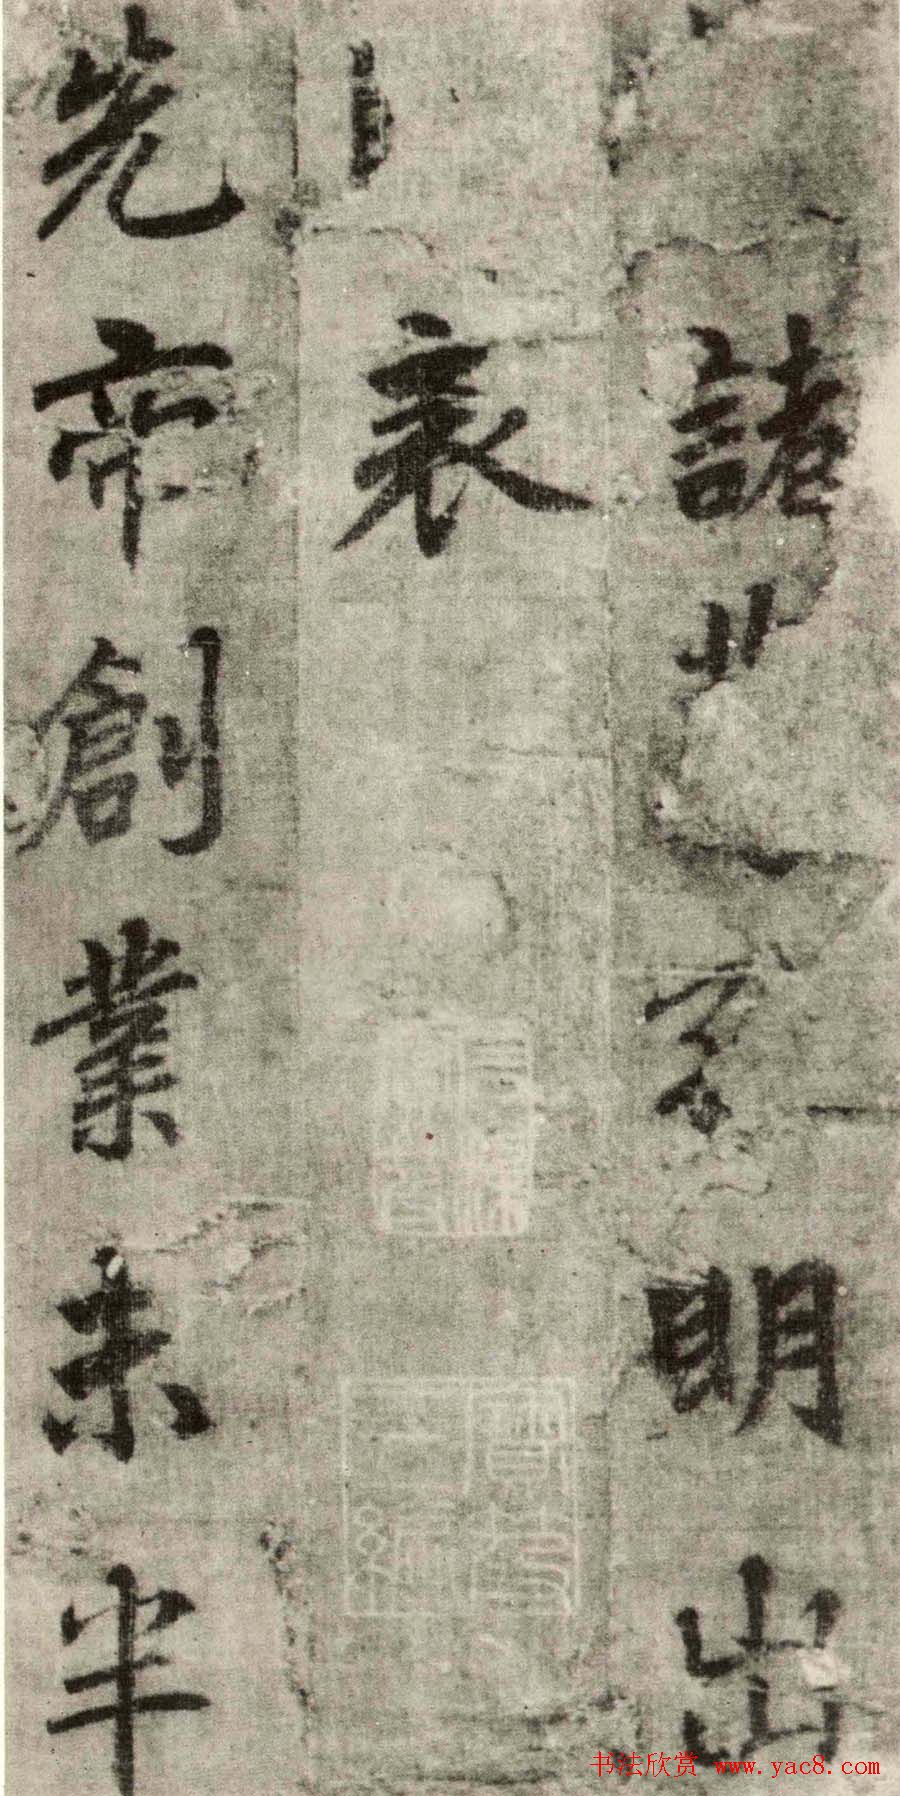 諸明出
表
先帝創業未半
书法欣赏 www.yac8.com